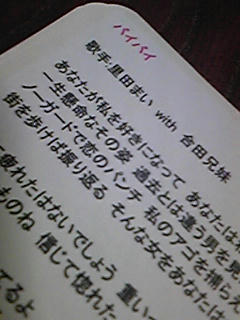 バイバイ
歌手:里田まい with 合田兄妹
あなたが私を好きになって あなたはわ
一生懸命なその姿 過去とは違う男を見
ノーガードで恋のパンチ 私のアゴを捕らえ
街を歩けば振り返る そんな女をあなたは
て疲れたはないでしょう 重い
ものね 信じて惚れた
てるよ